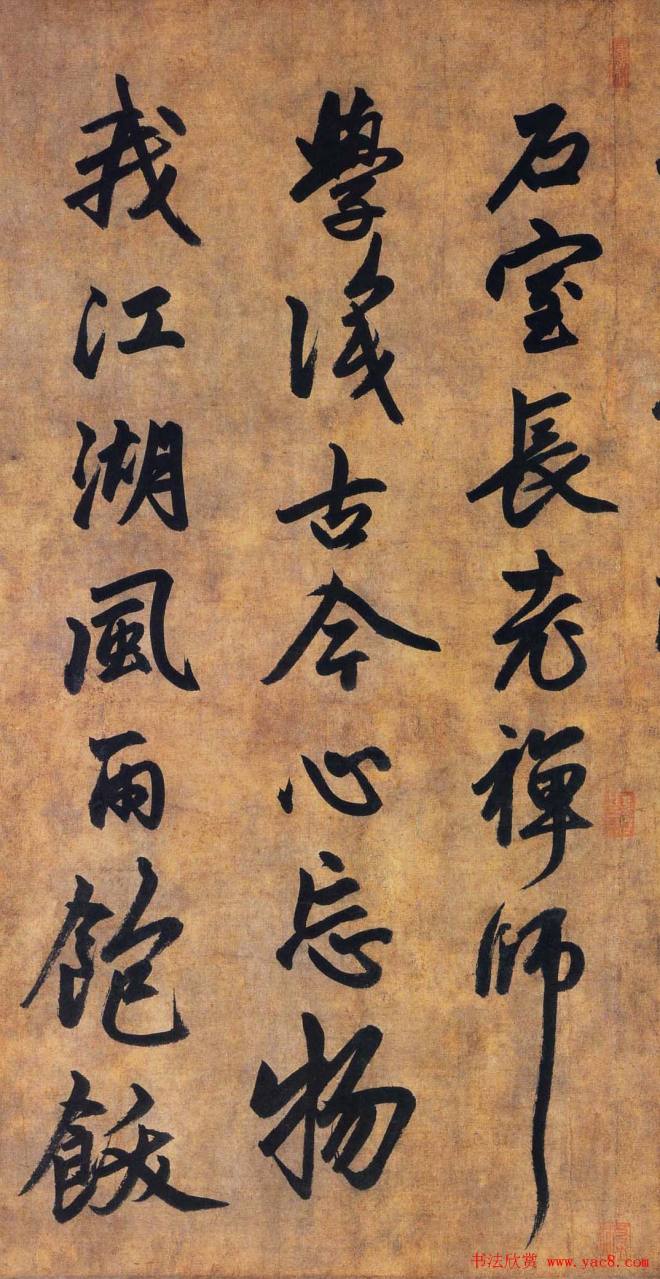 石室長老禪師
學識古今心忘物
我江湖風雨飽飫
书法欣赏 www.yac8.com